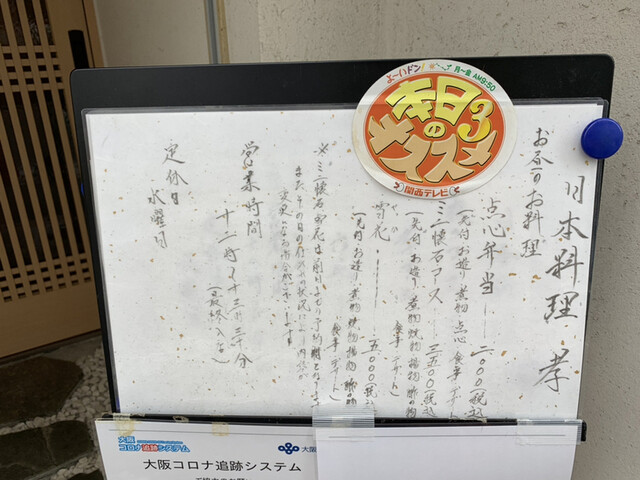 よ〜いドン!
月〜金 AM9:50
本日の
オススメ3
関西テレビ
日本料理 孝
お昼のお料理
点心弁当 二〇〇〇(税込
(先付 お造り 煮物 点心 食事 デザート)
ミニ懐石コース 三五〇〇(税込
(先付 お造り 煮物 焼物 揚物 酢の物
食事 デザート)
雪花 五〇〇〇(税込
(先付 お造り 煮物 焼物 揚物 酢の物
食事 デザート)
※ミニ懐石 雪花は前日までの予約制となります
またその日の仕入れの状況により内容が
変更になる場合がございます
営業時間
十二時〜十三時三十分
(最終入店)
定休日
水曜日
大阪
コロナ追跡システム
大阪コロナ追跡システム
大阪